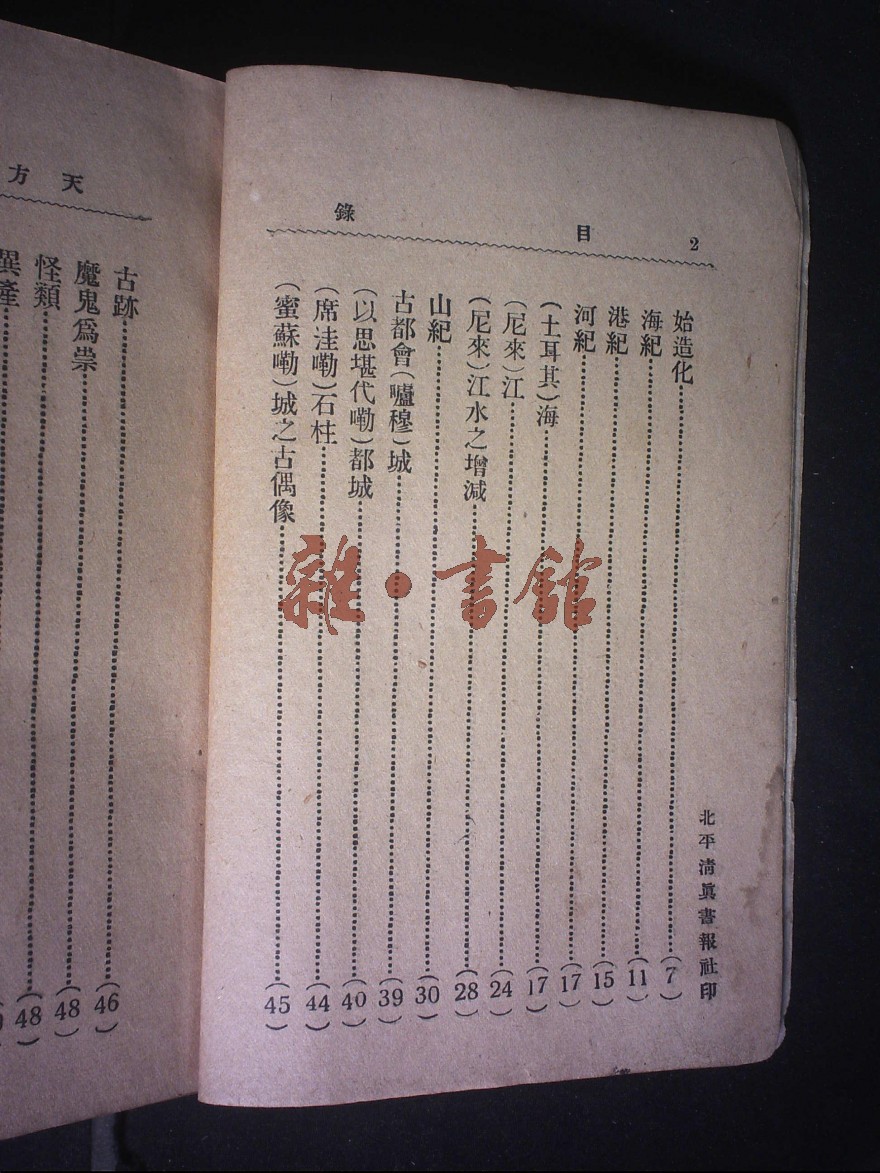 2 目錄
始造化(7)
海紀(11)
港紀(15)
河紀(17)
(土耳其)海(17)
(尼來)江(24)
(尼來)江水之增減(28)
山紀(30)
古都會(嚧穆)城(39)
(以思堪代嘞)都城(40)
(席洼嘞)石柱(44)
(蜜蘇嘞)城之古偶像(45)
北平清眞書報社印
雜·書館
天方
古跡(46)
魔鬼爲祟(48)
怪類(48)
異產